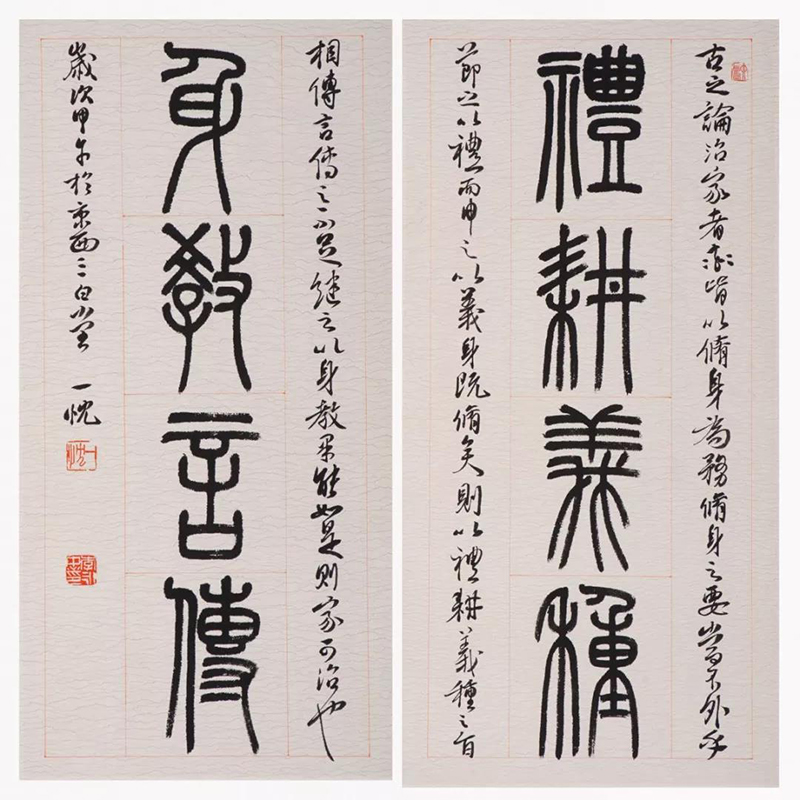 古之論治家者亦皆以脩身為務脩身之要當不外乎
禮耕義種
節之以禮而申之以義身既脩矣則以禮耕義種之旨
相傳言傳之不足繼之以身教果能如是則家可治也
身教言傳
歲次甲午於京西三白堂 一忱
一忱